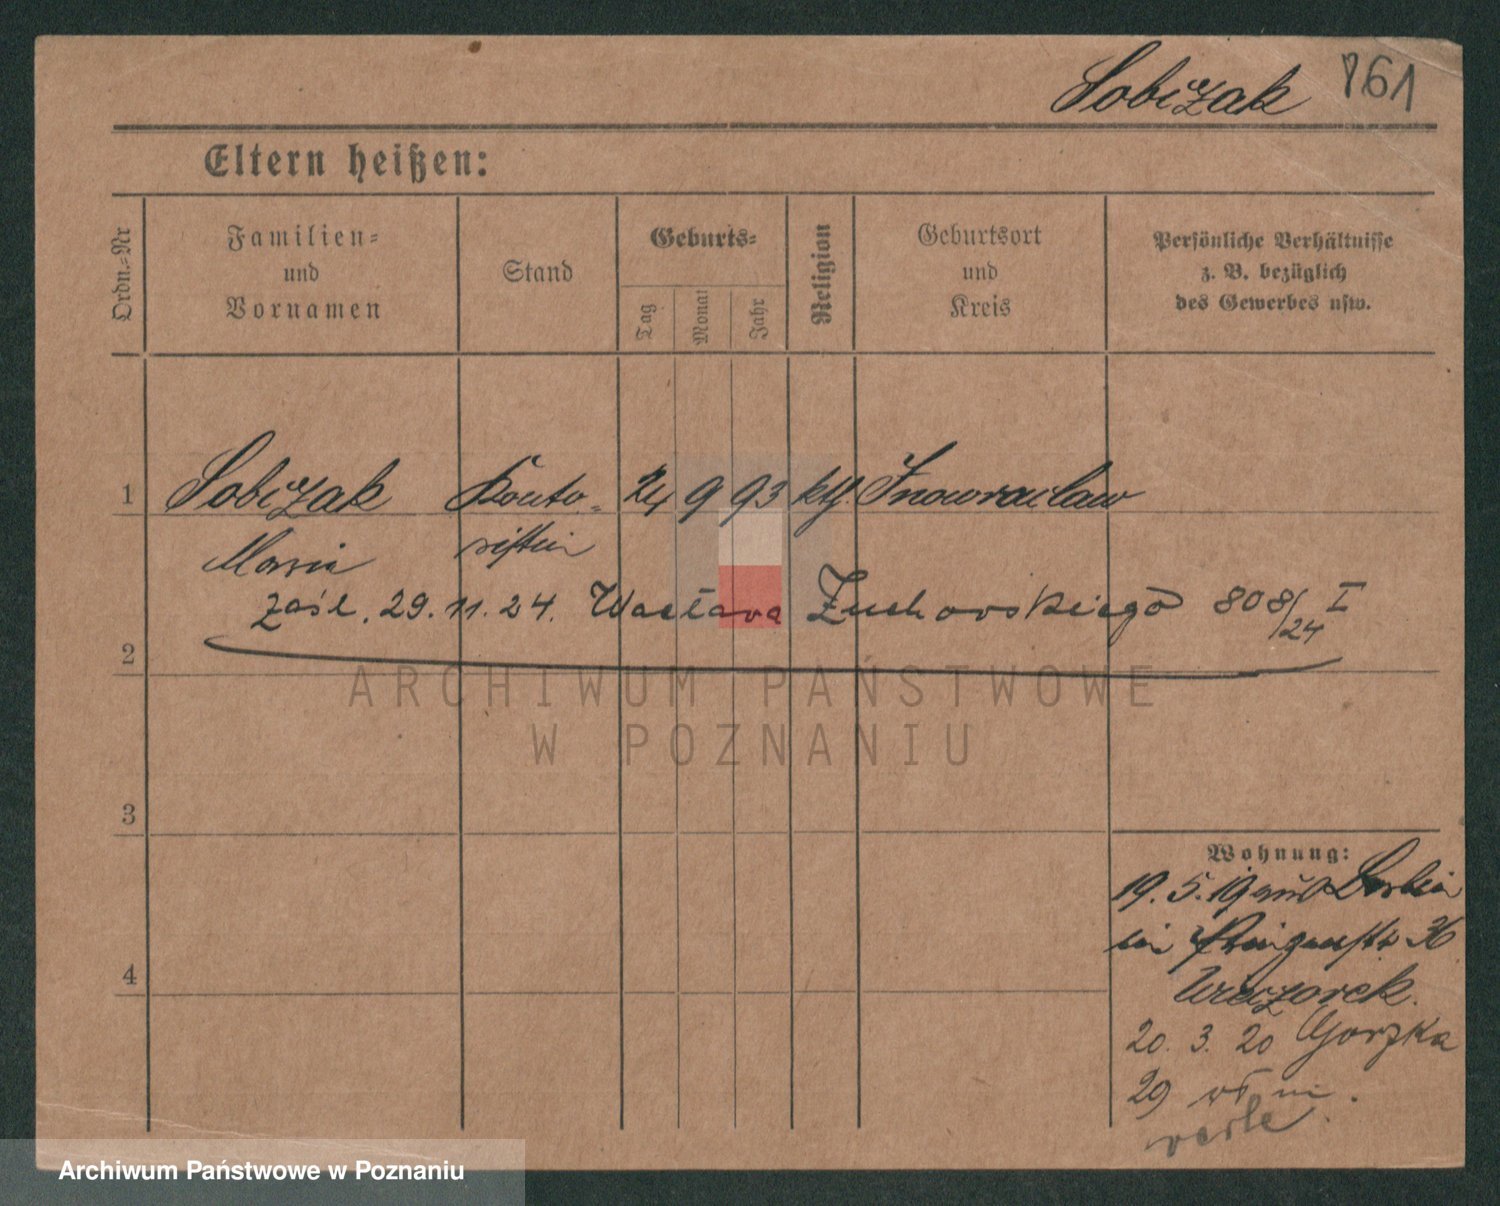 Sobczak 861
Eltern heißen:
Ordn.-Nr
Familien-
und
Vornamen
Stand
Geburts-
Tag
Monat
Jahr
Religion
Geburtsort
und
Kreis
Persönliche Verhältnisse
z. B. bezüglich
des Gewerbes usw.
1 Sobczak Konto- 24 9 93 kth. Inowraclaw
Maria ristin
zaśl. 29.11.24. Wacława Żuchowskiego 808/24 I
2
ARCHIWUM PAŃSTWOWE
W POZNANIU
3
4
Wohnung:
19. 5. 19 aus Berlin
bei 36
Wieczorek.
20. 3. 20 Gorzka
29
Archiwum Państwowe w Poznaniu